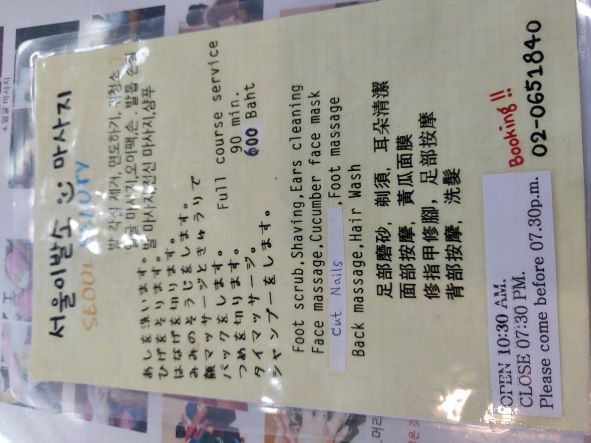 4.얼굴 마사지
서울이발소 마사지
SEOUL BEAUTY
발 각실 제거, 면도하기, 귀청소
얼굴 마사지,오이팩,손.발톱 손질
발 마사지,전신 마사지,샴푸
あしを洗います。
ひげをそります。
はなげを切ります。
みみのそうじをします。
顔マッサージときゅうりで
パックをします。
つめを切ります。
タイマッサージ。
シャンプーをします。
Full course service
90 min.
600 Baht
Foot scrub,Shaving,Ears cleaning
Face massage,Cucumber face mask
Cut Nails ,Foot massage
Back massage,Hair Wash
足部磨砂, 剃須, 耳朵清潔
面部按摩, 黃瓜面膜
修指甲修腳, 足部按摩
背部按摩, 洗髮
OPEN 10:30 AM.
CLOSE 07:30 PM.
Please come before 07.30p.m.
Booking !!
02-0651840